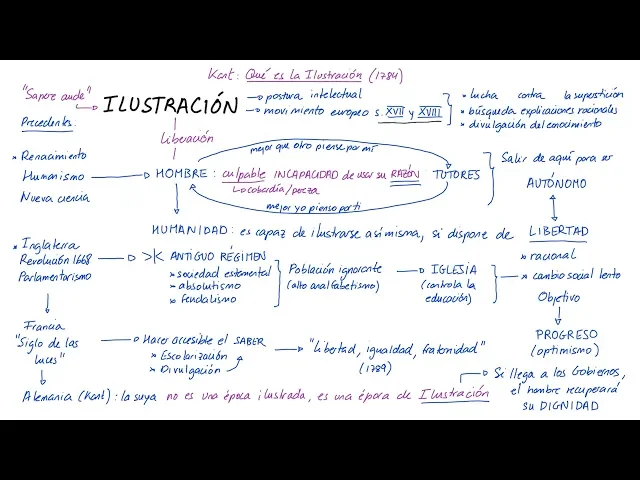 Kant: Qué es la Ilustración (1784)
"Sapere aude"
ILUSTRACIÓN
postura intelectual
movimiento europeo s. XVII y XVIII
* lucha contra la superstición
* búsqueda explicaciones racionales
* divulgación del conocimiento
Precedentes:
* Renacimiento
Humanismo
Nueva ciencia
liberación
mejor que otro piense por mí
HOMBRE: culpable INCAPACIDAD de usar su RAZÓN
Lo cobardía/pereza
TUTORES
mejor yo pienso por ti
Salir de aquí para ser
AUTÓNOMO
HUMANIDAD: es capaz de ilustrarse a sí misma, si dispone de LIBERTAD
* racional
* cambio social lento
Objetivo
PROGRESO
(optimismo)
* Inglaterra
Revolución 1668
Parlamentarismo
ANTIGUO RÉGIMEN
* sociedad estamental
* absolutismo
* feudalismo
Población ignorante
(alto analfabetismo)
IGLESIA
(controla la
educación)
Francia
"Siglo de las
luces"
Hacer accesible el SABER
* Escolarización
* Divulgación
"libertad, igualdad, fraternidad"
(1789)
Alemania (Kant): la suya no es una época ilustrada, es una época de Ilustración
Si llega a los Gobiernos,
el hombre recuperará
su DIGNIDAD